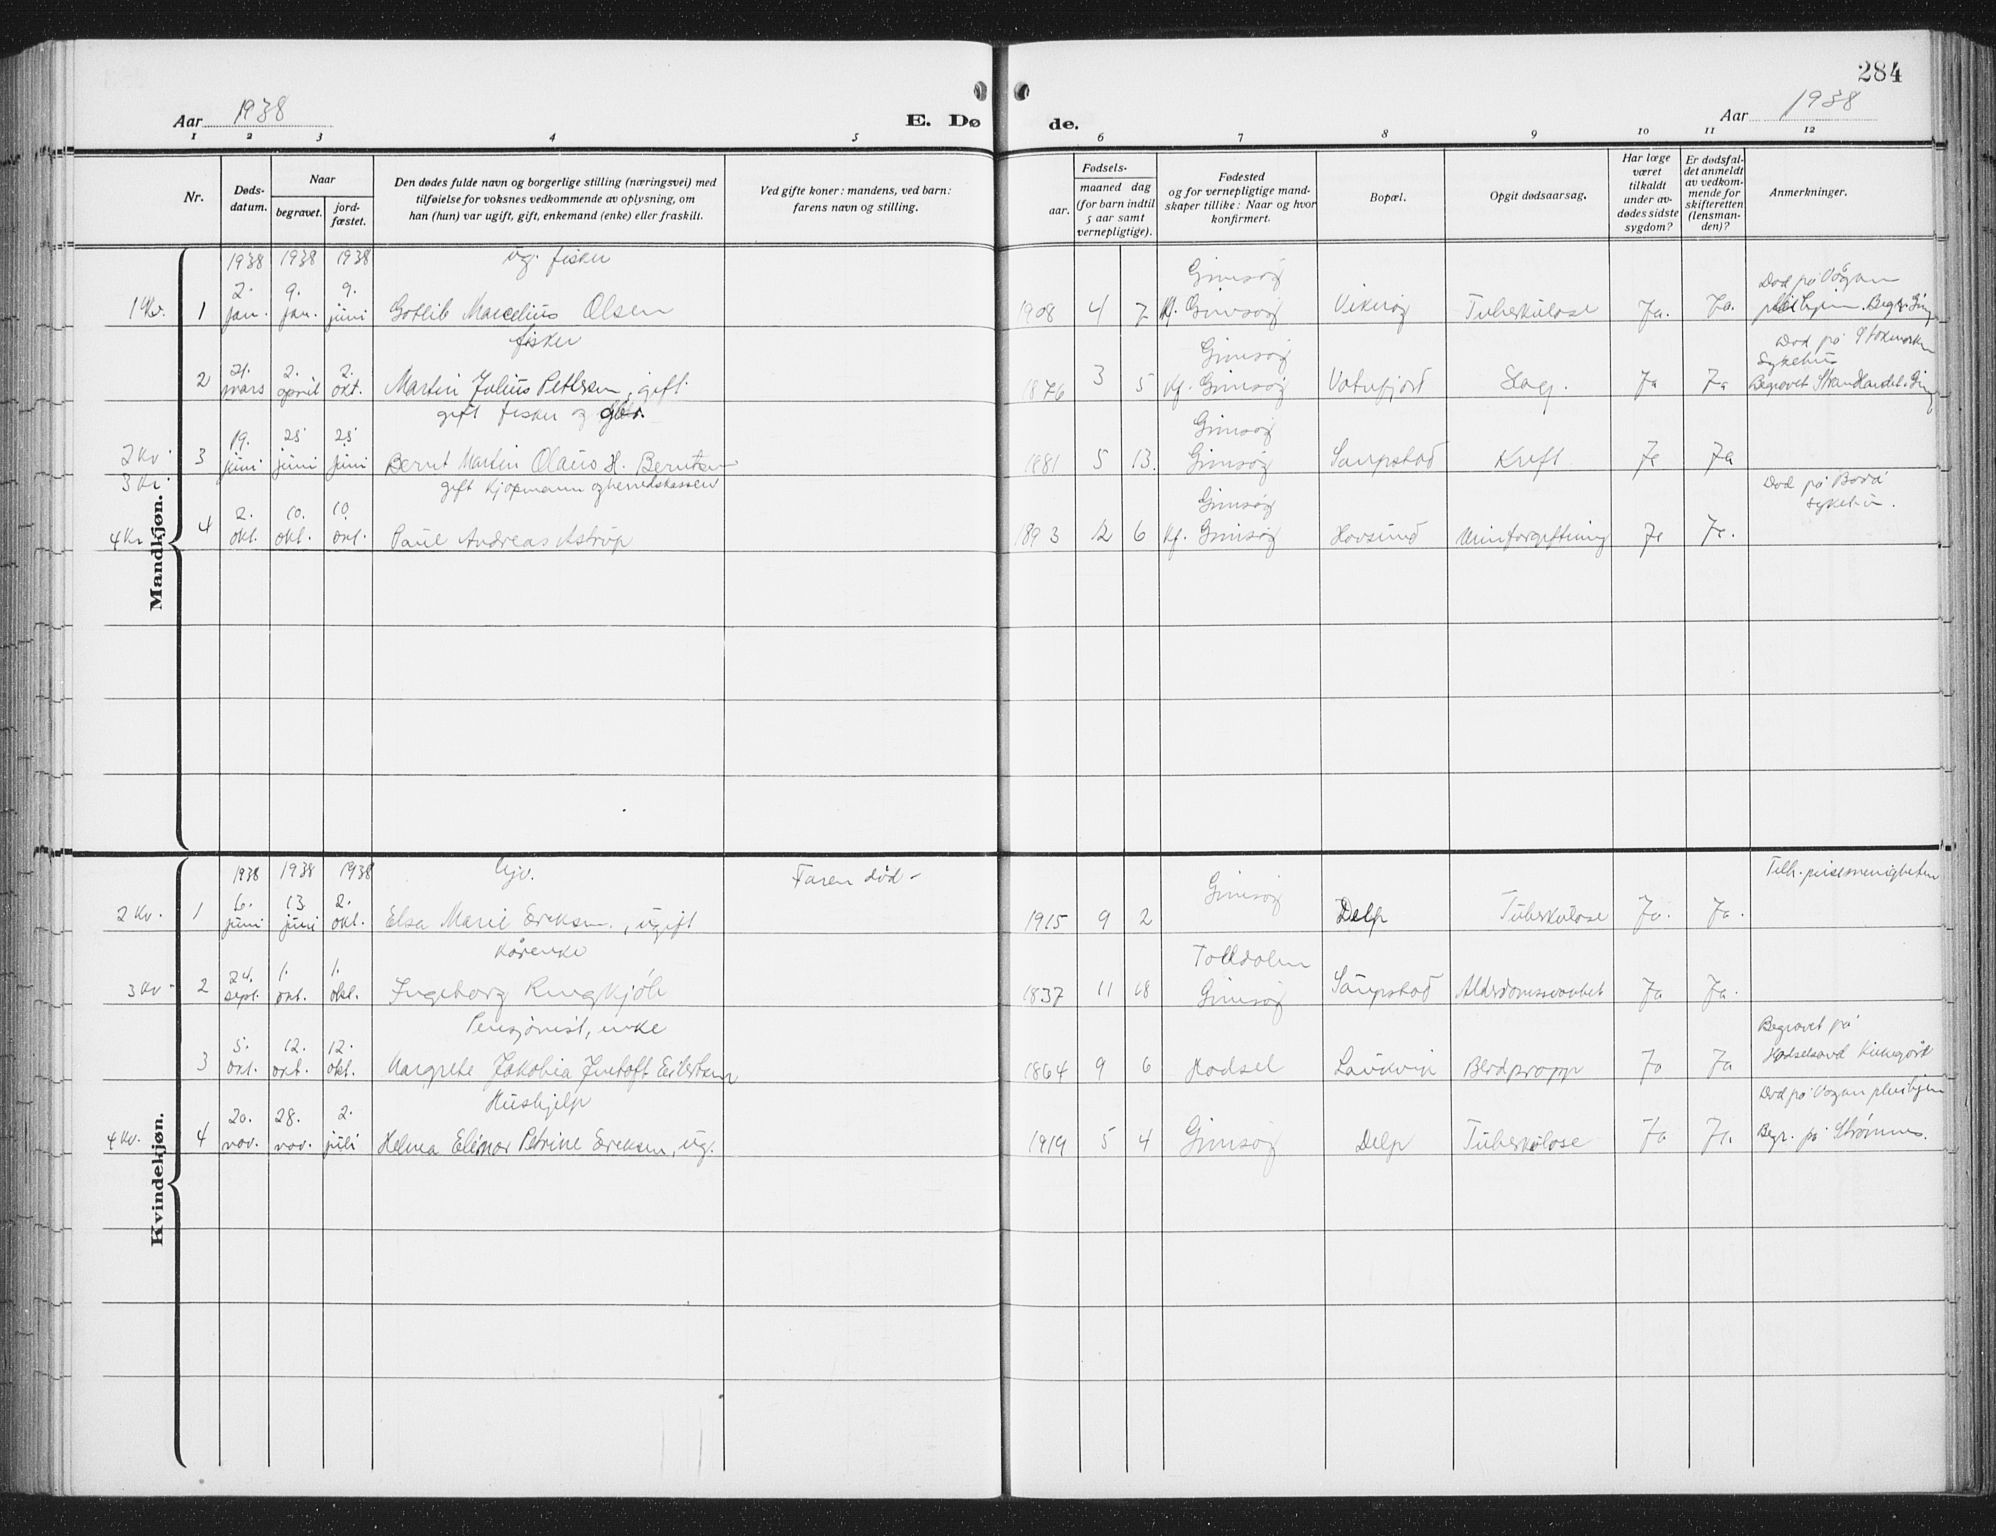 284
Aar 1938
E. Dø de.
Aar 1938
1 2 3 4 5 6 7 8 9 10 11 12
Nr.
Døds-
datum.
Naar
begravet.
jord-
fæstet.
Den dødes fulde navn og borgerlige stilling (næringsvei) med
tilføielse for voksnes vedkommende av oplysning, om
han (hun) var ugift, gift, enkemand (enke) eller fraskilt.
Ved gifte koner: mandens, ved barn:
farens navn og stilling.
Fødsels-
aar.
maaned dag
(for barn indtil
5 aar samt
vernepligtige).
Fødested
og for vernepligtige mand-
skaper tillike: Naar og hvor
konfirmert.
Bopæl.
Opgit dødsaarsag.
Har læge
været
tilkaldt
under av-
dødes sidste
sygdom?
Er dødsfal-
det anmeldt
av vedkom-
mende for
skifteretten
(lensman-
den)?
Anmerkninger.
Mandkjøn.
1938 1938 1938 ug. fisker Gimsøy Død på Vågan
1 Kv. 1 2. jan. 9. jan. 9. juni Gotlib Marcelius Olsen 1908 4 7 Kf. Gimsøy Vikøy Tuberkulose Ja. Ja.
fisker Gimsøy Død på Stokmarkn
sykehus
2 21. mars 2. april 2. okt. Martin Julius Pettersen, gift 1876 3 5 Kf. Gimsøy Vatnfjord Slag. Ja Ja Begravet
gift fisker og gbr. Gimsøy
2 Kv. 3 19. juni 25 juni 25 juni Bernt Martin Olaus H. Berntsen 1881 5 13. Gimsøy Saupstad Kreft Ja Ja
3 Kv. gift Kjøpmann og herredskasser Gimsøy Død på Bodø
sykehus.
4 Kv 4 2. okt. 10. okt. 10. okt. Paul Andreas Astrup 1893 12 6 Kf. Gimsøy Hovsund Urinforgiftning Ja Ja.
Kvindekjøn.
1938 1938 1938 Hjv. Faren død - Gimsøy Tilh. pinsemenigheten
2 Kv. 1 6. juni 13 juni 2. okt. Elsa Marie Eriksen, ugift 1915 9 2 Delp Tuberkulose Ja. Ja.
Kårenke Tolldalen
3 Kv - 2 24. sept. 1. okt. 1. okt. Ingeborg Ringkjøb 1837 11 18 Gimsøy Saupstad Alderdomssvakhet Ja Ja.
Pensjonist, enke Begravet på
3 5. okt. 12. okt. 12. okt. Margrete Jakobia Jentoft Eilertsen 1864 9 6 Hadsel Laukvik Blodpropp Ja Ja Hadselsand kirkegård
Hushjelp Død på Vågan pleiehjem
4 Kv. 4 20. nov. 28. nov. 2. juli Helma Elinor Petrine Eriksen, ug. 1919 5 4 Gimsøy Delp Tuberkulose Ja Ja. Begr. på Strømnes.